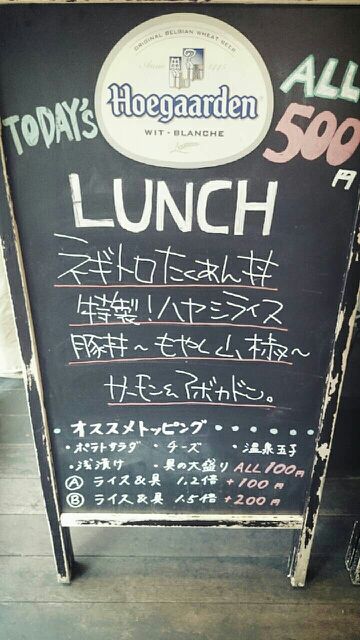 ORIGINAL BELGIAN WHEAT BEER
Anno 1445
Hoegaarden
WIT-BLANCHE
TODAY'S
ALL
500
円
LUNCH
ネギトロたくあん丼
特製!ハヤシライス
豚丼~もやし山椒~
サーモン&アボカドン。
オススメトッピング
・ポテトサラダ ・チーズ ・温泉玉子
・浅漬け ・具の大盛り ALL 100円
Ⓐ ライス&具 1.2倍 +100円
Ⓑ ライス&具 1.5倍 +200円